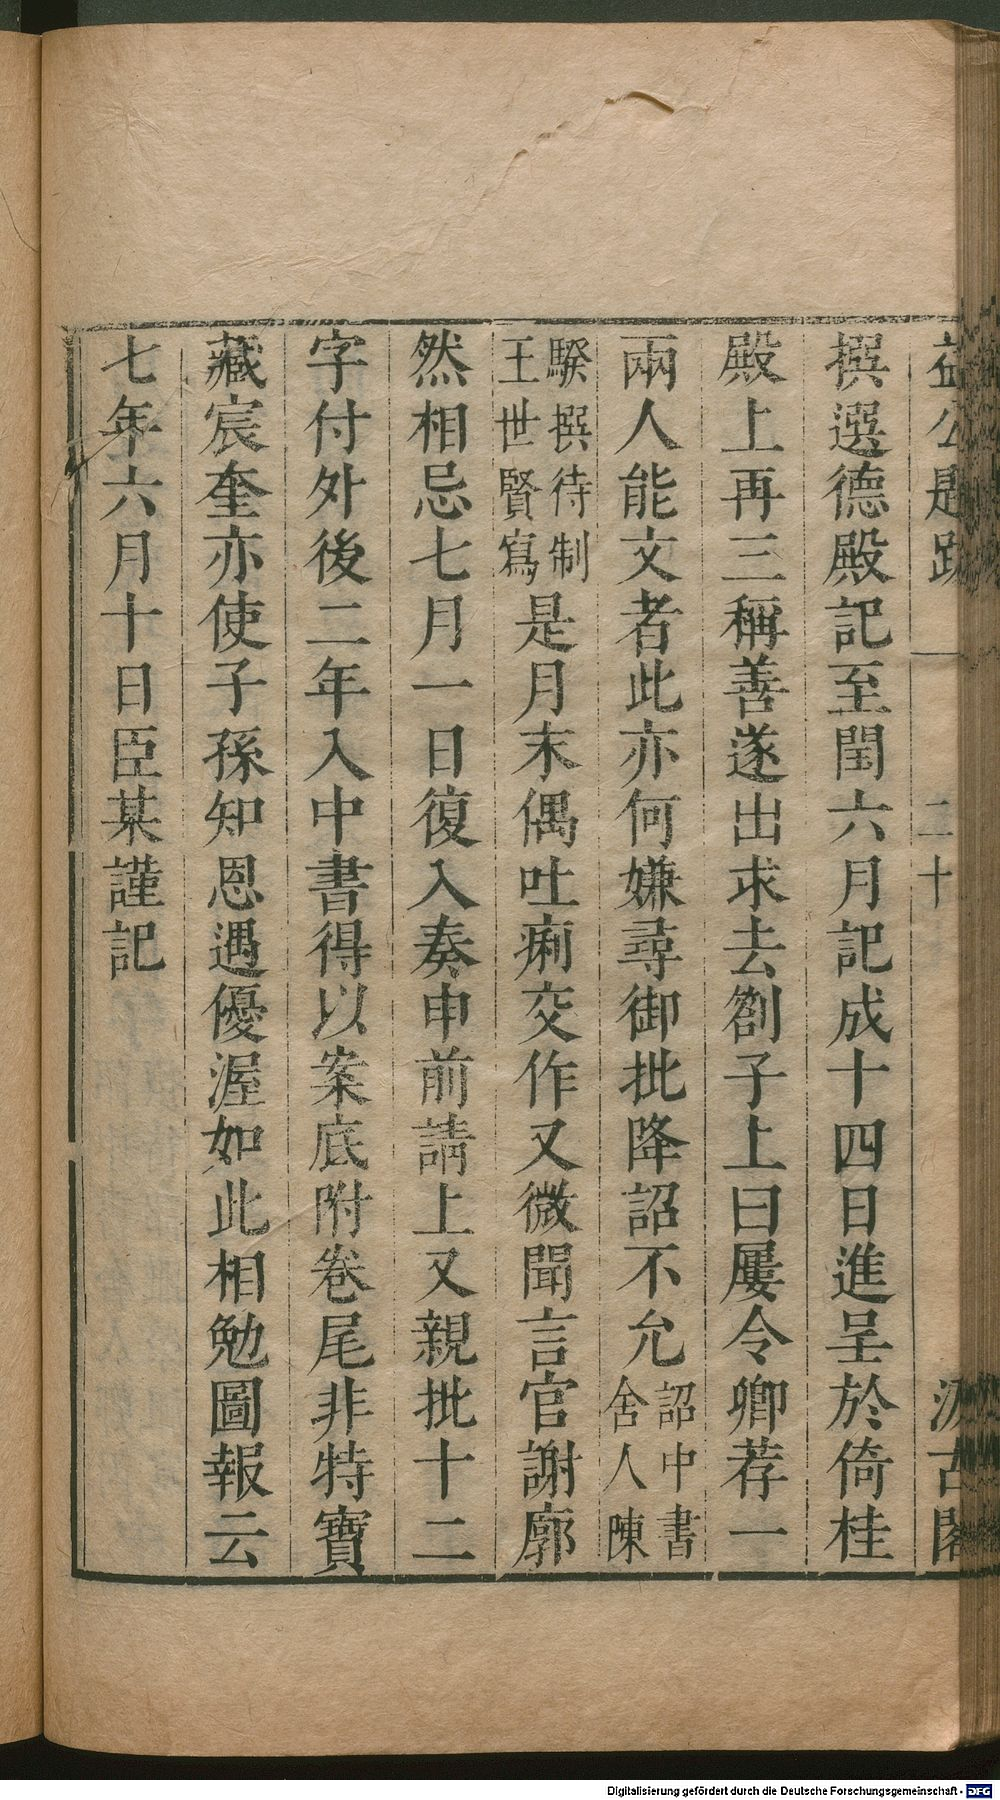 益公題跋 二十 汲古閣
撰選德殿記至閏六月記成十四日進呈於倚桂
殿上再三稱善遂出求去劄子上曰屢令卿荐一
兩人能文者此亦何嫌尋御批降詔不允詔中書舍人陳
騤撰待制王世賢寫是月末偶吐痢交作又微聞言官謝廓
然相忌七月一日復入奏申前請上又親批十二
字付外後二年入中書得以案底附卷尾非特寶
藏宸奎亦使子孫知恩遇優渥如此相勉圖報云
七年六月十日臣某謹記
Digitalisierung gefördert durch die Deutsche Forschungsgemeinschaft - DFG